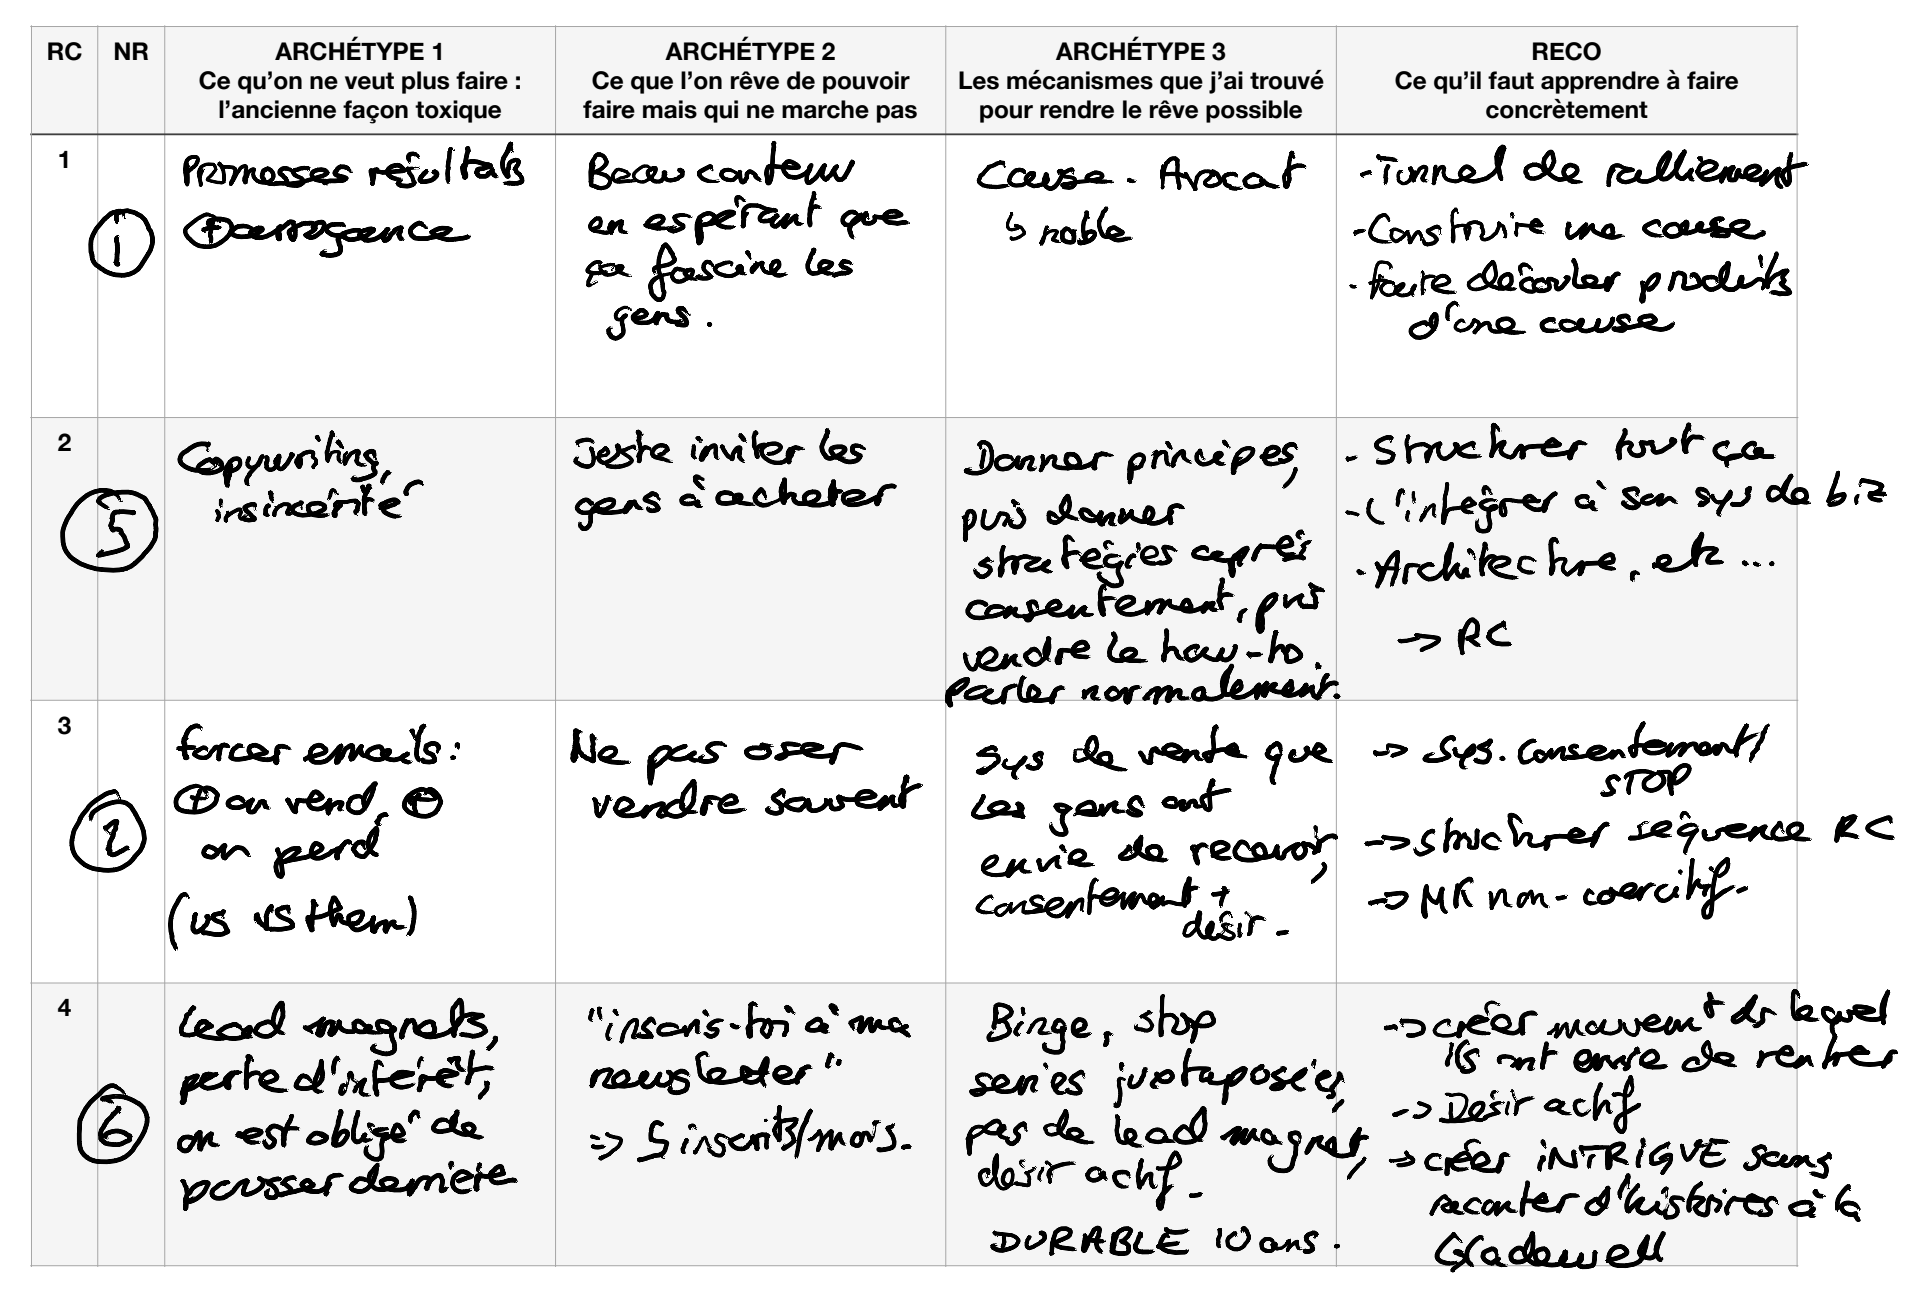 RC
NR
ARCHÉTYPE 1
Ce qu'on ne veut plus faire :
l'ancienne façon toxique
ARCHÉTYPE 2
Ce que l'on rêve de pouvoir
faire mais qui ne marche pas
ARCHÉTYPE 3
Les mécanismes que j'ai trouvé
pour rendre le rêve possible
RECO
Ce qu'il faut apprendre à faire
concrètement
1
1
Promesses résultats
+ arrogance
Beau contenu
en espérant que
ça fascine les
gens.
Cause. Avocat
↳ noble
- Tunnel de ralliement
- Construire une cause
- Faire découler produits
d'une cause
2
5
Copywriting,
insincérité
Juste inviter les
gens à acheter
Donner principes,
puis donner
stratégies après
consentement, puis
vendre le how-to.
Parler normalement.
- Structurer tout ça
- L'intégrer à son sys de biz
- Architecture, etc...
→ RC
3
2
forcer emails:
+ on vend, -
on perd
(us vs them)
Ne pas oser
vendre souvent
Sys de vente que
les gens ont
envie de recevoir,
consentement +
désir -
→ Sys. Consentement/
STOP
→ structurer séquence RC
→ MK non-coercitif.
4
6
Lead magnets,
perte d'intérêt,
on est obligé de
pousser derrière
"inscris-toi à ma
newsletter"
=> 5 inscrits/mois.
Binge, stop
séries juxtaposées,
pas de lead magnet,
désir actif -
DURABLE 10 ans.
→ créer mouvemt ds lequel
ils ont envie de rentrer
→ Désir actif
→ créer INTRIGUE sans
raconter d'histoires à la
Gladwell